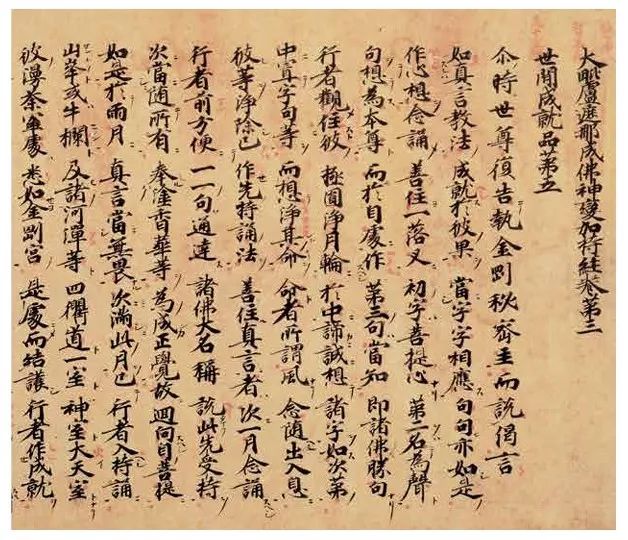 大毗盧遮那成佛神變加持經卷第三
世間成就品第五
尒時世尊復告執金剛秘密主而說偈言
如真言教法 成就於彼果 當字字相應 句句亦如是
作心想念誦 善住一落叉 初字菩提心 第二名為聲
句想為本尊 而於自處作 第三句當知 即諸佛勝句
行者觀住彼 極圓淨月輪 於中諦誠想 諸字如次第
中寘字句等 而想淨其命 命者所謂風 念隨出入息
彼等淨除已 作先持誦法 善住真言者 次一月念誦
行者前方便 一一句通達 諸佛大名稱 說此先受持
次當隨所有 奉塗香華等 為成正覺故 迴向自菩提
如是於兩月 真言當無畏 次滿此月已 行者入持誦
山峯或牛欄 及諸河潬等 四衢道一室 神室大天室
彼漫荼羅處 悉如金剛宮 是處而結護 行者作成就